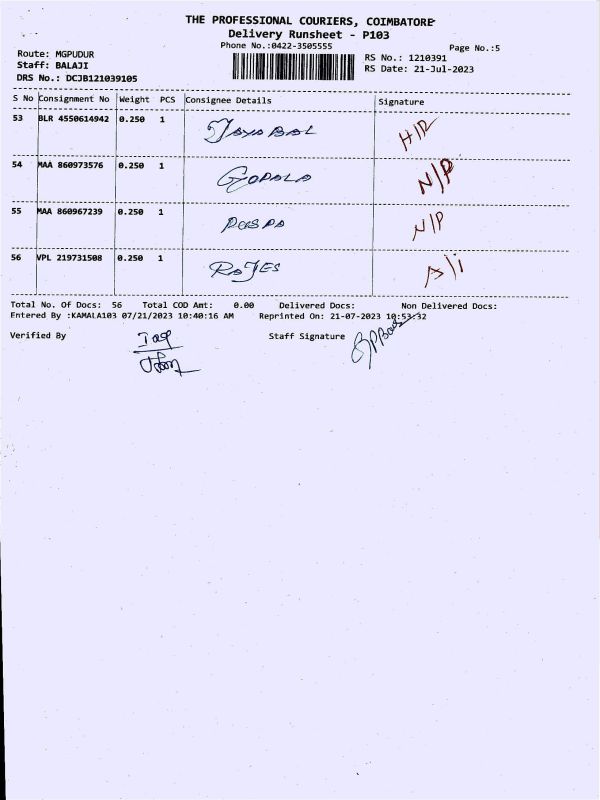 THE PROFESSIONAL COURIERS, COIMBATORE
Delivery Runsheet - P103
Phone No.:0422-3505555
Page No.:5
Route: MGPUDUR
Staff: BALAJI
DRS No.: DCJB121039105
RS No.: 1210391
RS Date: 21-Jul-2023
S No Consignment No Weight PCS Consignee Details Signature
53 BLR 4550614942 0.250 1 H/R
54 MAA 860973576 0.250 1 GOPALA N/P
55 MAA 860967239 0.250 1 N/P
56 VPL 219731508 0.250 1 ROJES
Total No. Of Docs: 56 Total COD Amt: 0.00 Delivered Docs: Non Delivered Docs:
Entered By :KAMALA103 07/21/2023 10:40:16 AM Reprinted On: 21-07-2023 10:53:32
Verified By Staff Signature